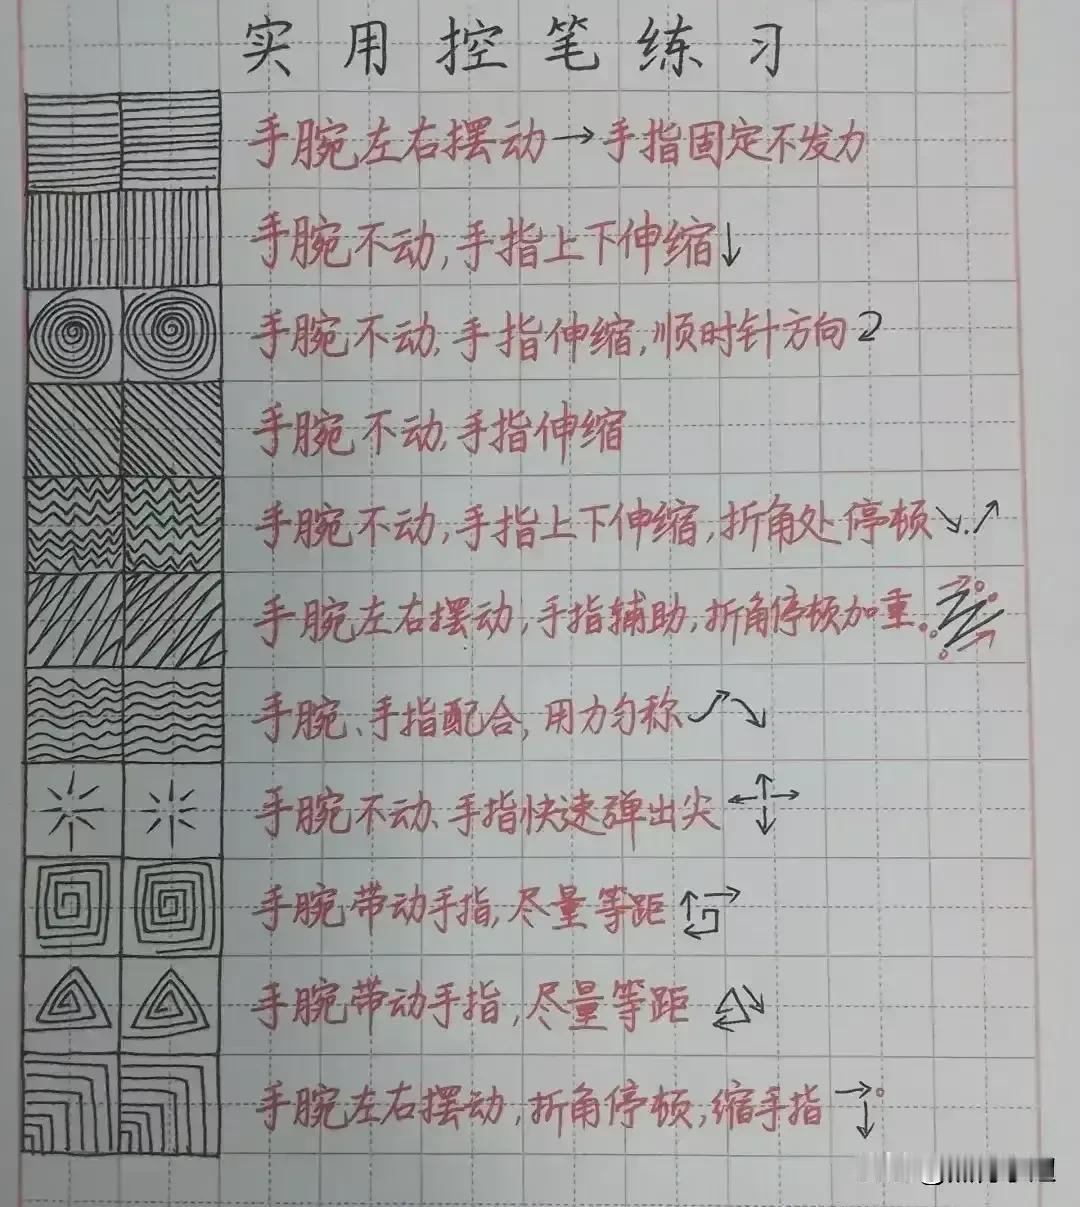 实用控笔练习
手腕左右摆动→手指固定不发力
手腕不动,手指上下伸缩↓
手腕不动,手指伸缩,顺时针方向
手腕不动,手指伸缩
手腕不动,手指上下伸缩,折角处停顿↘↗
手腕左右摆动,手指辅助,折角停顿加重。
手腕、手指配合,用力匀称
手腕不动、手指快速弹出尖
手腕带动手指,尽量等距
手腕带动手指,尽量等距
手腕左右摆动,折角停顿,缩手指→↓